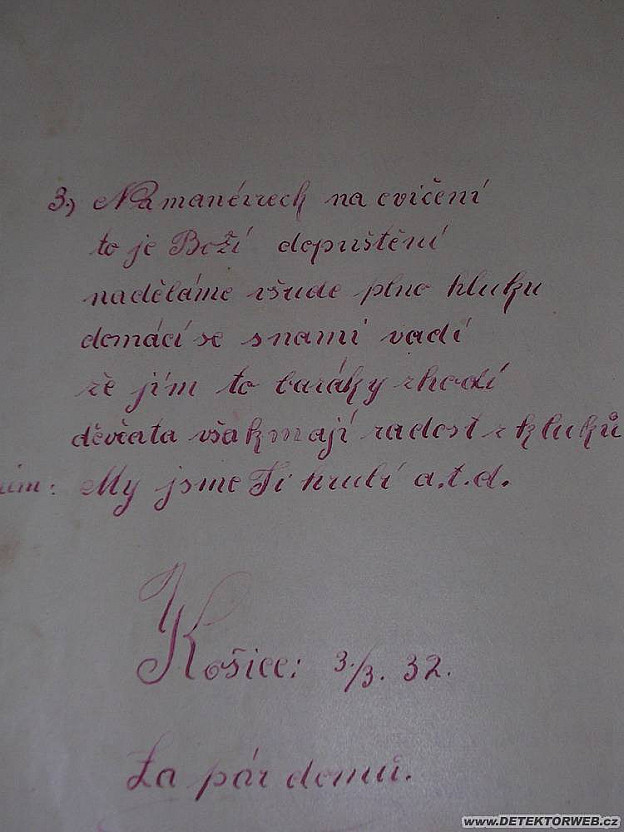 3.) Na manévrech na cvičení
to je Boží dopuštění
naděláme všude plno hluku
domácí se snami vadí
že jím to baráky zhodí
děvčata však mají radost z kluků
My jsme Ti hrubí a.t.d.
Košice: 3./3. 32.
Za pár domů.
www.DETEKTORWEB.cz